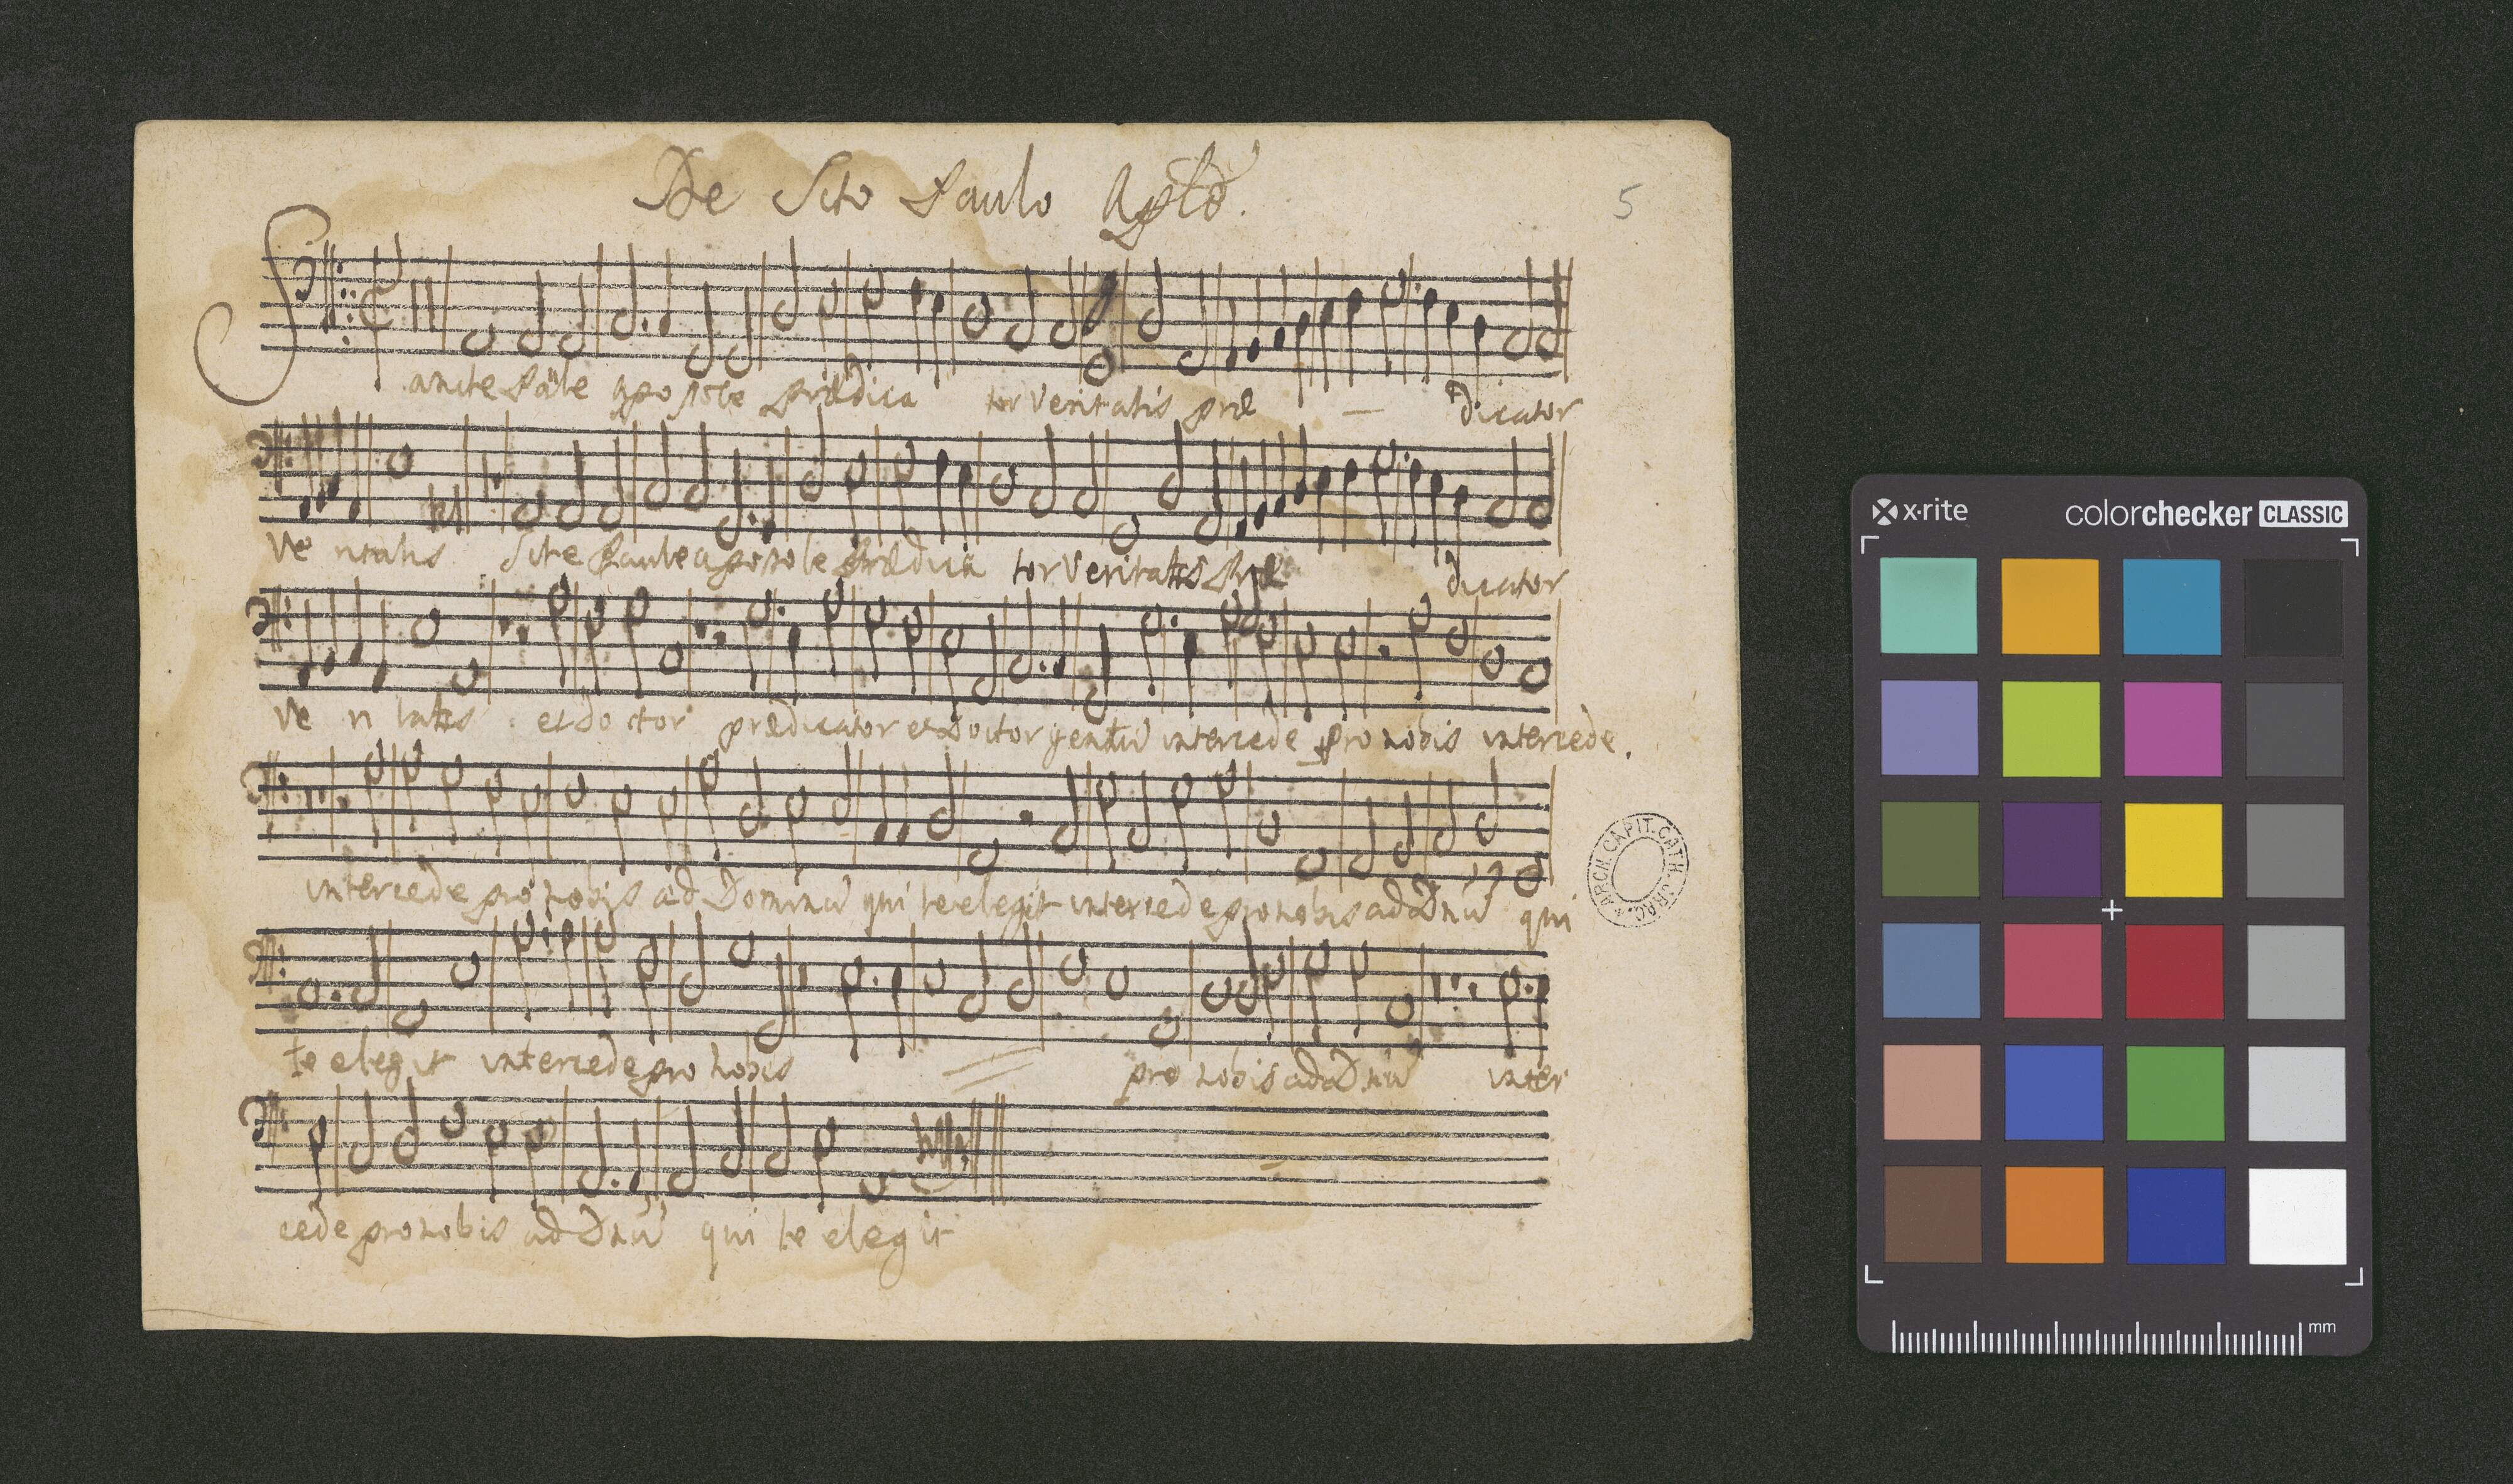 De Scto Paulo Aplo.
5
Sancte Paule apostole prædica tor veritatis præ — dicator
Ve ritatis Scte Paule apostole prædica tor Veritatis præ dicator
Ve ri tatis et doctor prædicator et Doctor gentiu intercede pro nobis intercede.
intercede pro nobis ad Dominu qui te elegit intercede pro nobis ad Dnu qui
te elegit intercede pro nobis pro nobis ad Dnu inter
cede pro nobis ad Dnu qui te elegit
ARCH. CAPIT. CATH. CRAC.
x-rite
colorchecker CLASSIC
mm